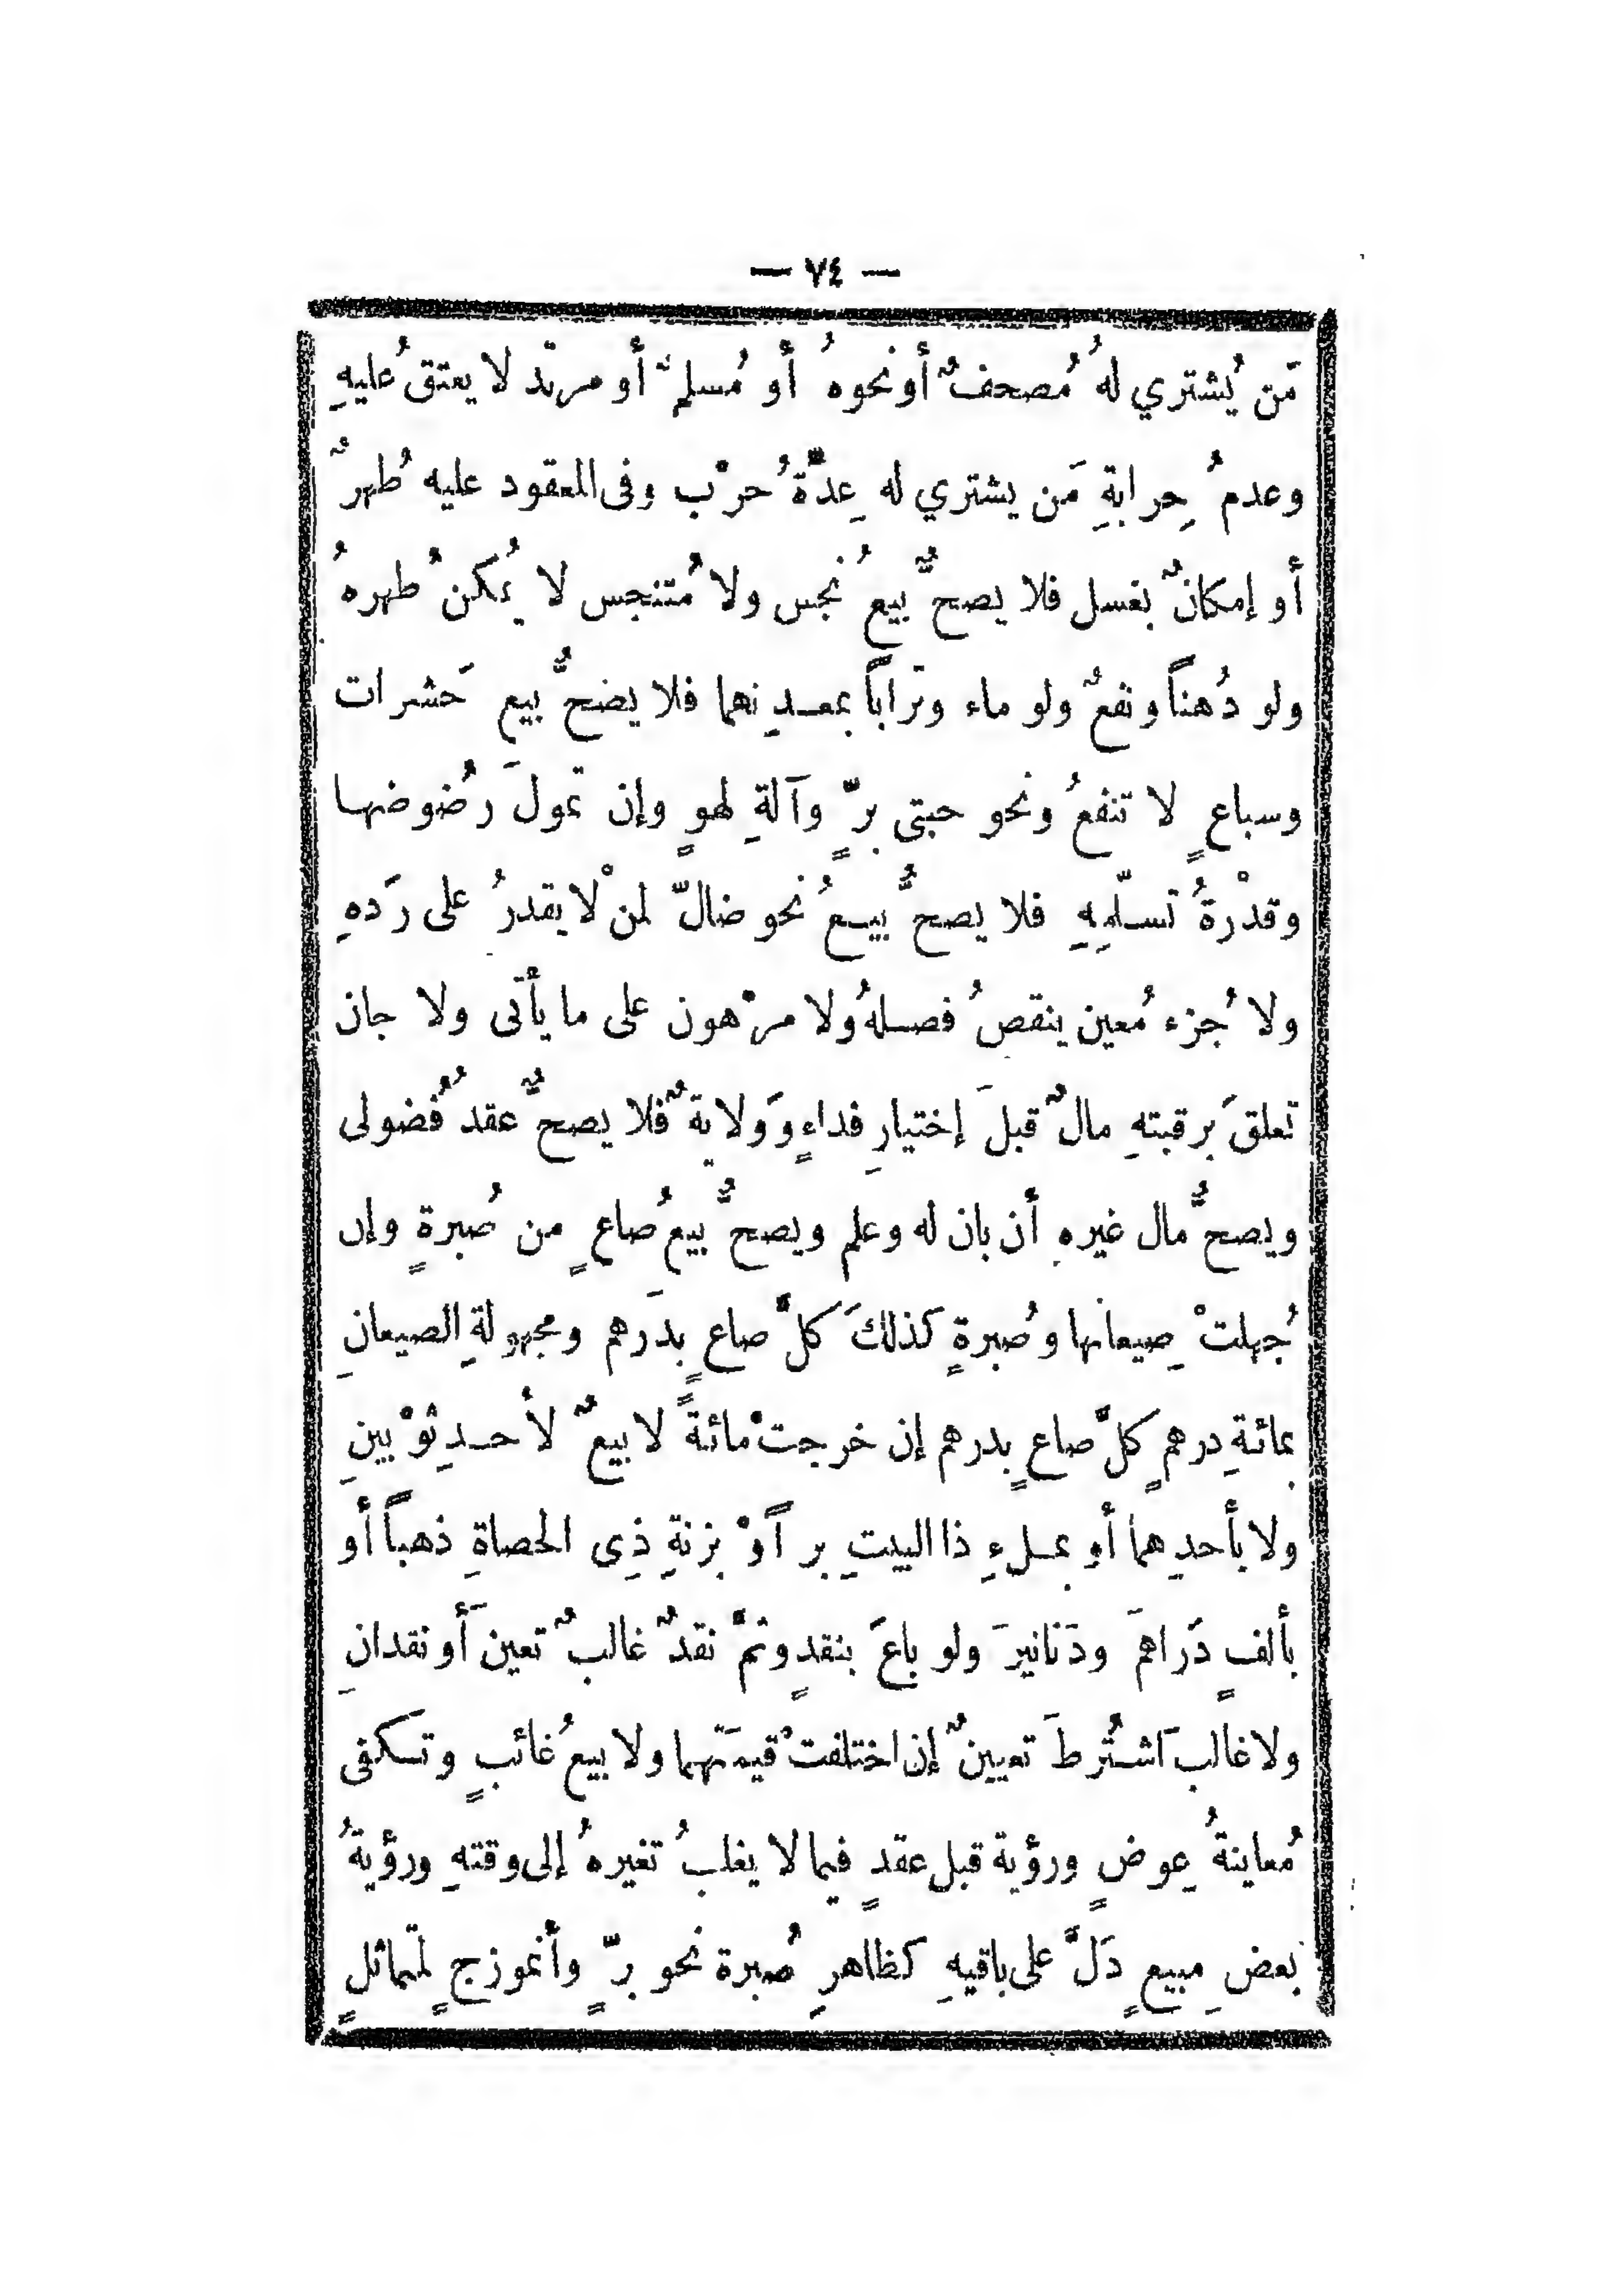 — ٧٤ —
مَن يُشتري لهُ مُصحفٌ أو نحوهُ أو مُسلمٌ أو مرتدّ لا يعتقُ عليهِ
وعدمُ حِرابةِ مَن يشتري له عِدَّةُ حرْب وفى المعقود عليه طُهرٌ
أو إمكانٌ بغسل فلا يصحُّ بيعُ نجس ولا مُتنجس لا يُمكنُ طهرهُ
ولو دُهناً ونفعٌ ولو ماء وتراباً بمعدِنهما فلا يضحُّ بيع حَشرات
وسباعٍ لا تنفعُ ونحو حبتى برٍّ وآلةِ لهوٍ وإن تمولَ رُضوضها
وقدْرةُ تسلّمِهِ فلا يصحُّ بيعُ نحو ضالّ لمنْ لا يقدرُ على رَدهِ
ولا جُزء مُعين ينقصُ فصلهُ ولا مرْهون على ما يأتى ولا جان
تعلقَ برقبتهِ مالٌ قبلَ إختيارِ فداءٍ وَولايةٌ فلا يصحُّ عقدُ فُضولى
ويصحُّ مال غيرهِ أن بان له وعلم ويصحُّ بيعُ صاعٍ من صُبرةٍ وإن
جُهلتْ صِيعانها وصُبرةٍ كذلكَ كلَّ صاعٍ بِدَرهم ومجهولةِ الصيعانِ
بمائةِ درهمٍ كلَّ صاعٍ بِدرهم إن خرجتْ مائةً لا بيعٌ لأحدِ ثوْبينِ
ولا بأحدِهما أو بملءِ ذا البيتِ بر اًوْ بزنةِ ذِى الحصاةِ ذهباً أو
بألفٍ دَراهمَ ودَنانيرَ ولو باعَ بنقدٍ وثمَّ نقدٌ غالبٌ تعينَ أو نقدانِ
ولا غالبَ اشتُرطَ تعيينٌ إن اختلفتْ قيمَتهما ولا بيعُ غائبٍ وتكفى
مُعاينةُ عِوضٍ ورؤية قبل عقدٍ فيما لا يغلبُ تغيرهُ إلى وقتهِ ورؤيةُ
بعضِ مبيعٍ دَلَّ على باقيهِ كظاهرِ صُبرة نحو برٍّ وأنموزجٍ لمتماثلٍ